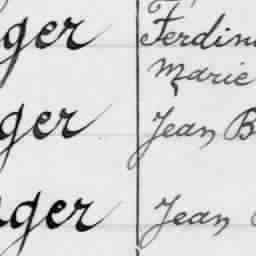 ger Ferdin
Marie
ger Jean B
ger Jean